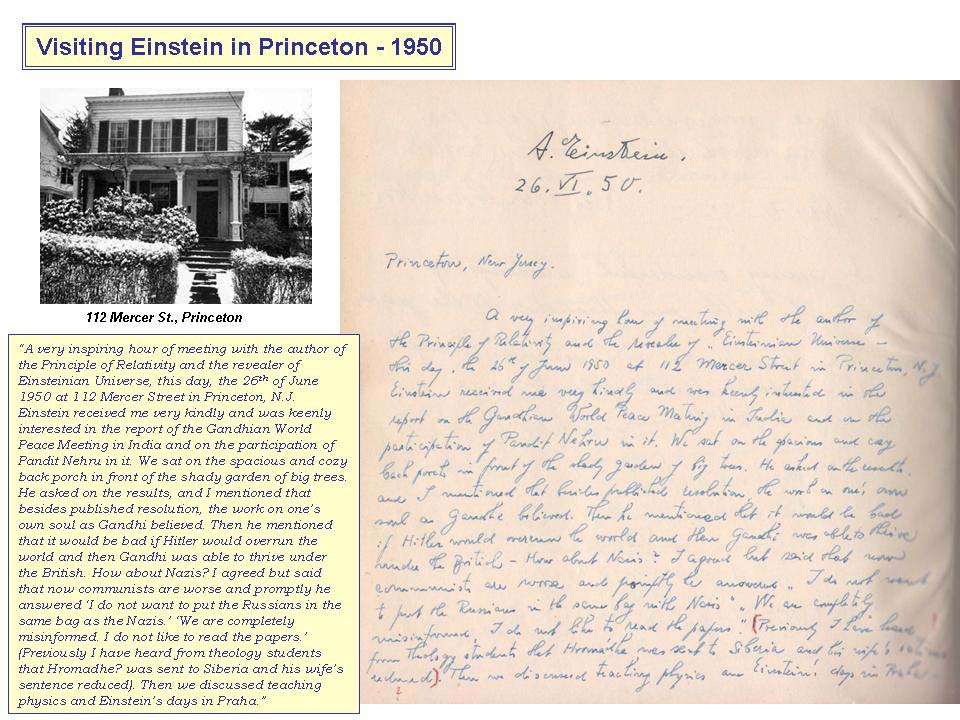 Visiting Einstein in Princeton - 1950
112 Mercer St., Princeton
"A very inspiring hour of meeting with the author of
the Principle of Relativity and the revealer of
Einsteinian Universe, this day, the 26th of June
1950 at 112 Mercer Street in Princeton, N.J.
Einstein received me very kindly and was keenly
interested in the report of the Gandhian World
Peace Meeting in India and on the participation of
Pandit Nehru in it. We sat on the spacious and cozy
back porch in front of the shady garden of big trees.
He asked on the results, and I mentioned that
besides published resolution, the work on one's
own soul as Gandhi believed. Then he mentioned
that it would be bad if Hitler would overrun the
world and then Gandhi was able to thrive under
the British. How about Nazis? I agreed but said
that now communists are worse and promptly he
answered 'I do not want to put the Russians in the
same bag as the Nazis.' 'We are completely
misinformed. I do not like to read the papers.'
(Previously I have heard from theology students
that Hromadhe? was sent to Siberia and his wife's
sentence reduced). Then we discussed teaching
physics and Einstein's days in Praha."
A. Einstein.
26. VI. 50.
Princeton, New Jersey.
A very inspiring hour of meeting with the author of
the Principle of Relativity and the revealer of „Einsteinian Universe –
this day, the 26th of June 1950 at 112 Mercer Street in Princeton, N.J.
Einstein received me very kindly and was keenly interested in the
report on the Gandhian World Peace Meeting in India and on the
participation of Pandit Nehru in it. We sat on the spacious and cozy
back porch in front of the shady garden of big trees. He asked on the results.
and I mentioned that besides published resolution, the work on one's own
soul as Gandhi believed. Then he mentioned that it would be bad
if Hitler would overrun the world and then Gandhi was able to thrive
under the British – How about Nazis? I agreed but said that now
communists are worse and promptly he answered „I do not want
to put the Russians in the same bag with Nazis" „We are completely
misinformed, I do not like to read the papers." (Previously I have heard
from theology students that Hromadhe was sent to Siberia and his wife's
reduced). Then we discussed teaching physics and Einstein's days in Praha
?